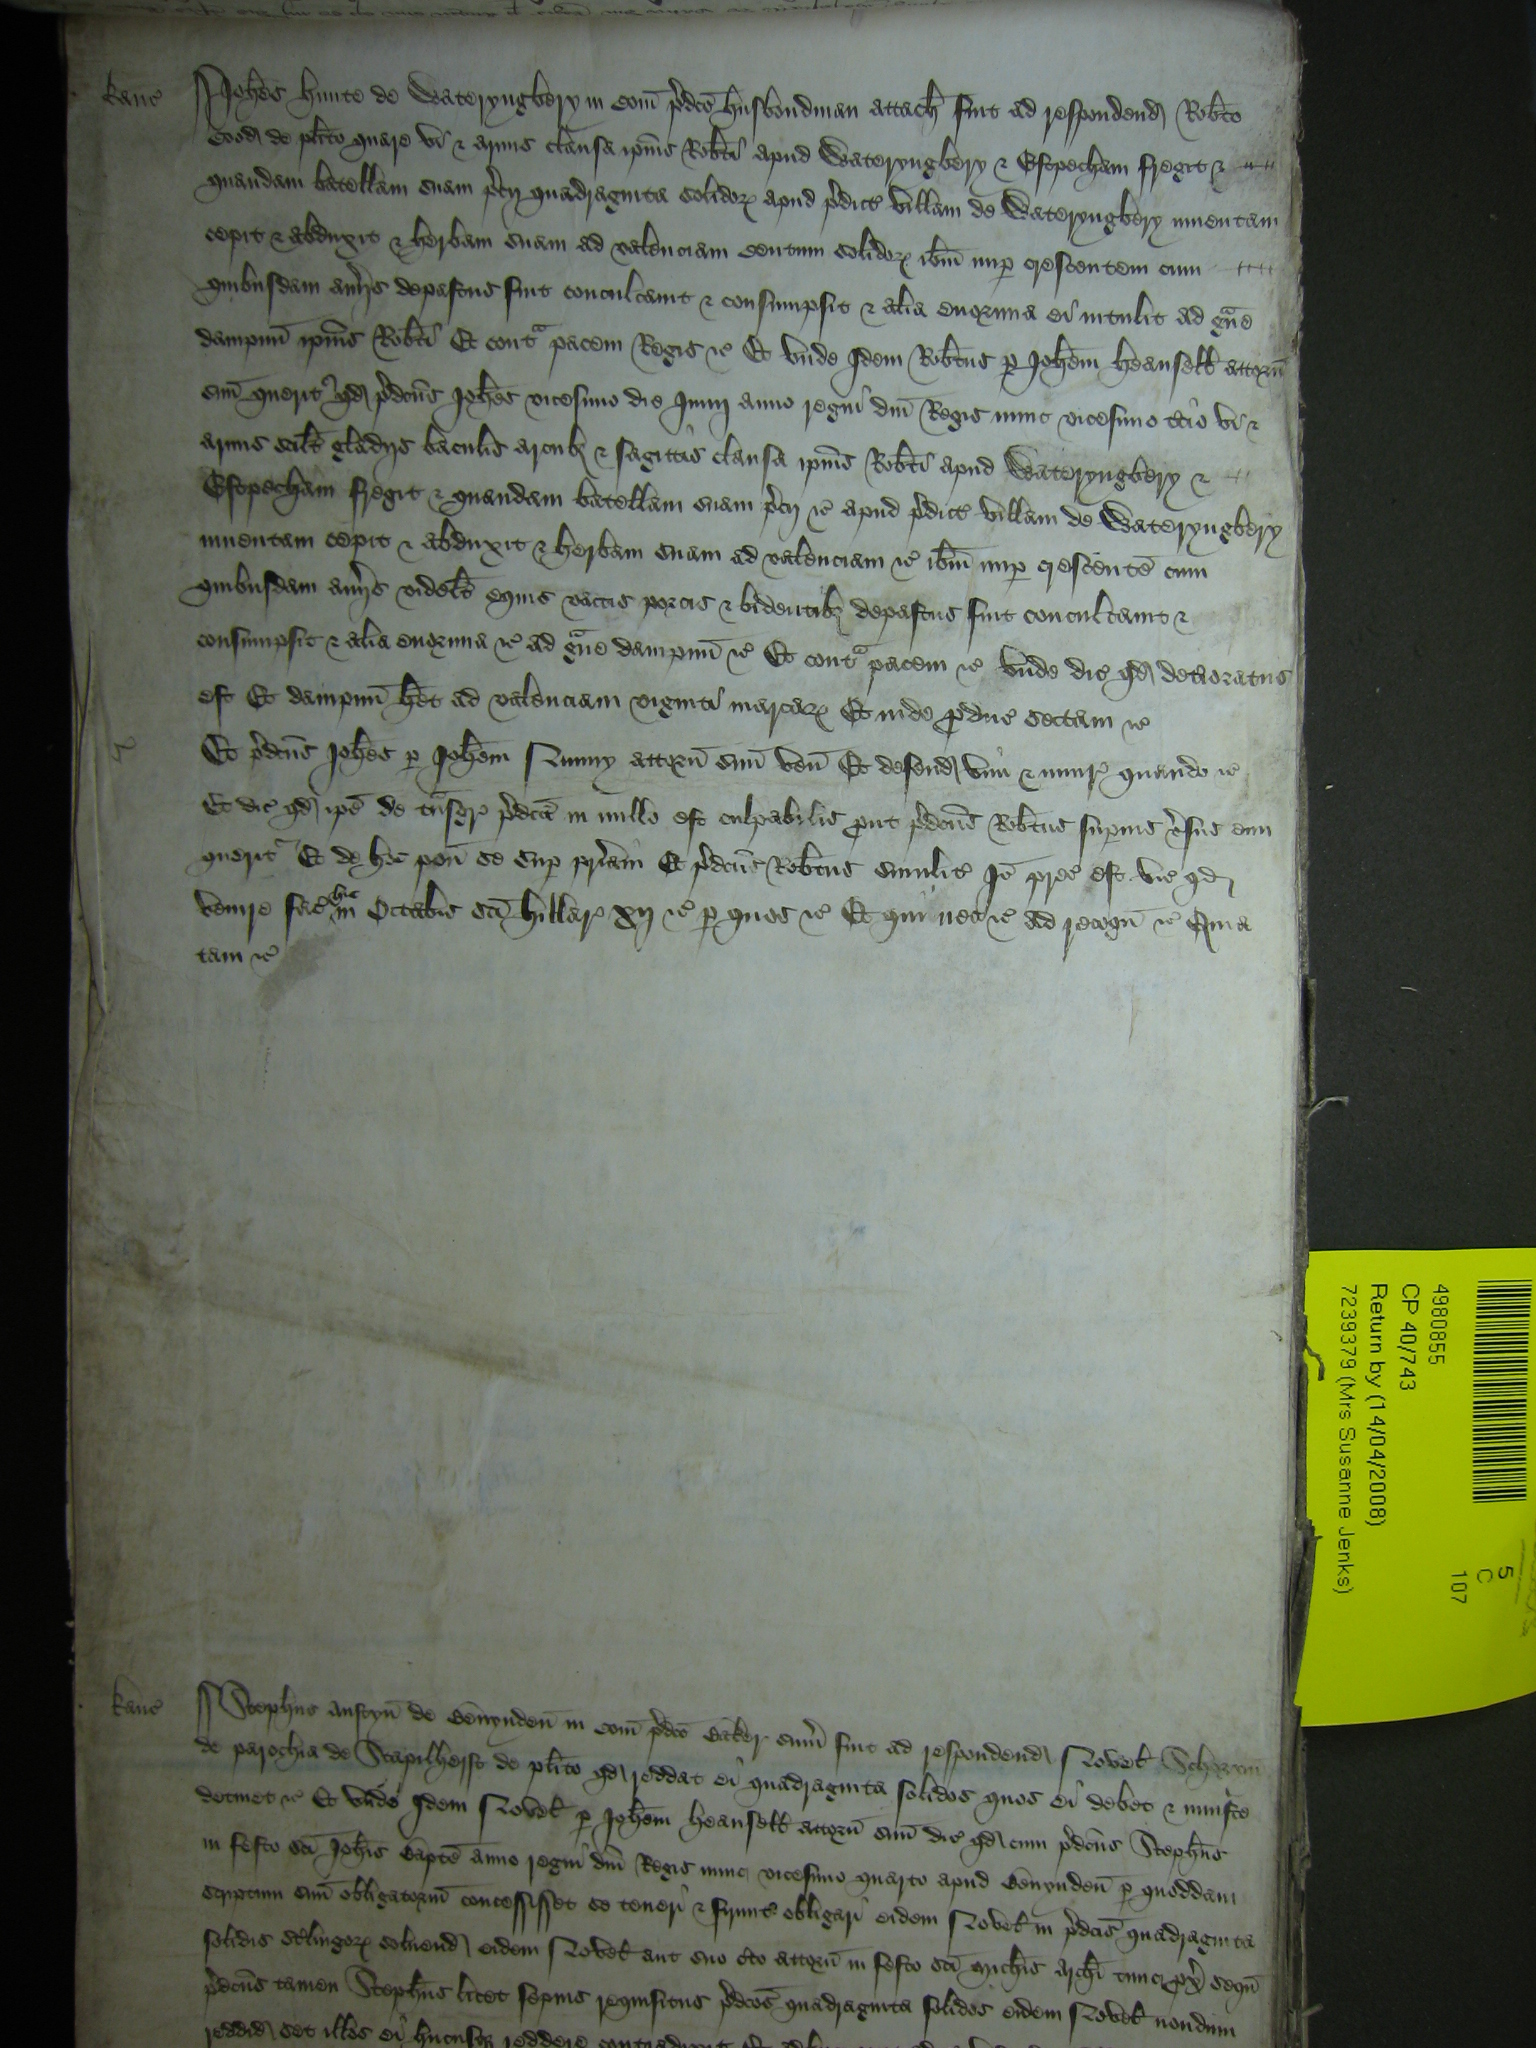 kanc
Johes Hunte de Wateryngbery in com pdco husbondman attach fuit ad respondend Robto
Good de plito quare vi & armis clausa ipius Robti apud Wateryngbery & Estpecham fregit &
quandam batellam suam pcij quadraginta solidor apud pdict villam de Wateryngbery inuentam
cepit & abduxit & herbam suam ad valenciam centum solidor ibm nup crescentem cum
quibusdam auijs depastus fuit conculcauit & consumpsit & alia enormia ei intulit ad gue
dampnu ipius Robti Et contra pacem Regis &c Et vnde Idem Robtus p Johem Heansell attorn
suu querit qd pdcus Johes vicesimo die Junij anno regni dni Regis nunc vicesimo tcio vi &
armis scilt gladijs baculis arcub & sagittis clausa ipius Robti apud Wateryngbery &
Estpecham fregit & quandam batellam suam pcij &c apud pdict villam de Wateryngbery
inuentam cepit & abduxit & herbam suam ad valenciam &c ibm nup crescente cum
quibusdam auijs videlt equis vaccis porcis & bidentib depastus fuit conculcauit &
consumpsit & alia enormia &c ad gue dampnu &c Et contra pacem &c vnde dic qd detioratus
est Et dampnu het ad valenciam viginti marcar Et inde pduc sectam &c
Et pdcus Johes p Johem attorn suu ven Et defend vim & iniur quando &c
Et dic qd ipe de tnsgr pdca in nullo est culpabilis put pdcus Robtus supius vsus eum
querit Et de hoc pon se sup priam Et pdcus Robtus similit Io prec est vic qd
venire fac hic in Octabis sci Hillar xij &c p quos &c Et qui nec &c ad recogn &c Quia
tam &c
kanc
Stephus Austyn de Benynden in com pdco Baker sum fuit ad respondend Nobel
de parochia de Stapilherst de plito qd reddat ei quadraginta solidos quos ei debet & iniuste
detinet &c Et vnde Idem Nobel p Johem Heansell attorn suu dic qd cum pdcus Stephus
in festo sci Johis Bapte anno regni dni Regis nunc vicesimo quarto apud Benynden p quoddam
scriptum suu obligatoriu concessisset se teneri & firmit obligari eidem Nobel in pdcis quadraginta
solidis stlingor soluend eidem Nobel aut suo cto attorn in festo sci Michis Archi tunc px sequ
pdcus tamen Stephus licet sepius requisitus pdcos quadraginta solidos eidem Nobel nondum
reddid set illos ei hucusq reddere contradixit
4980855
CP 40/743
Return by (14/04/2008)
7239379 (Mrs Susanne Jenks)
5
C
107